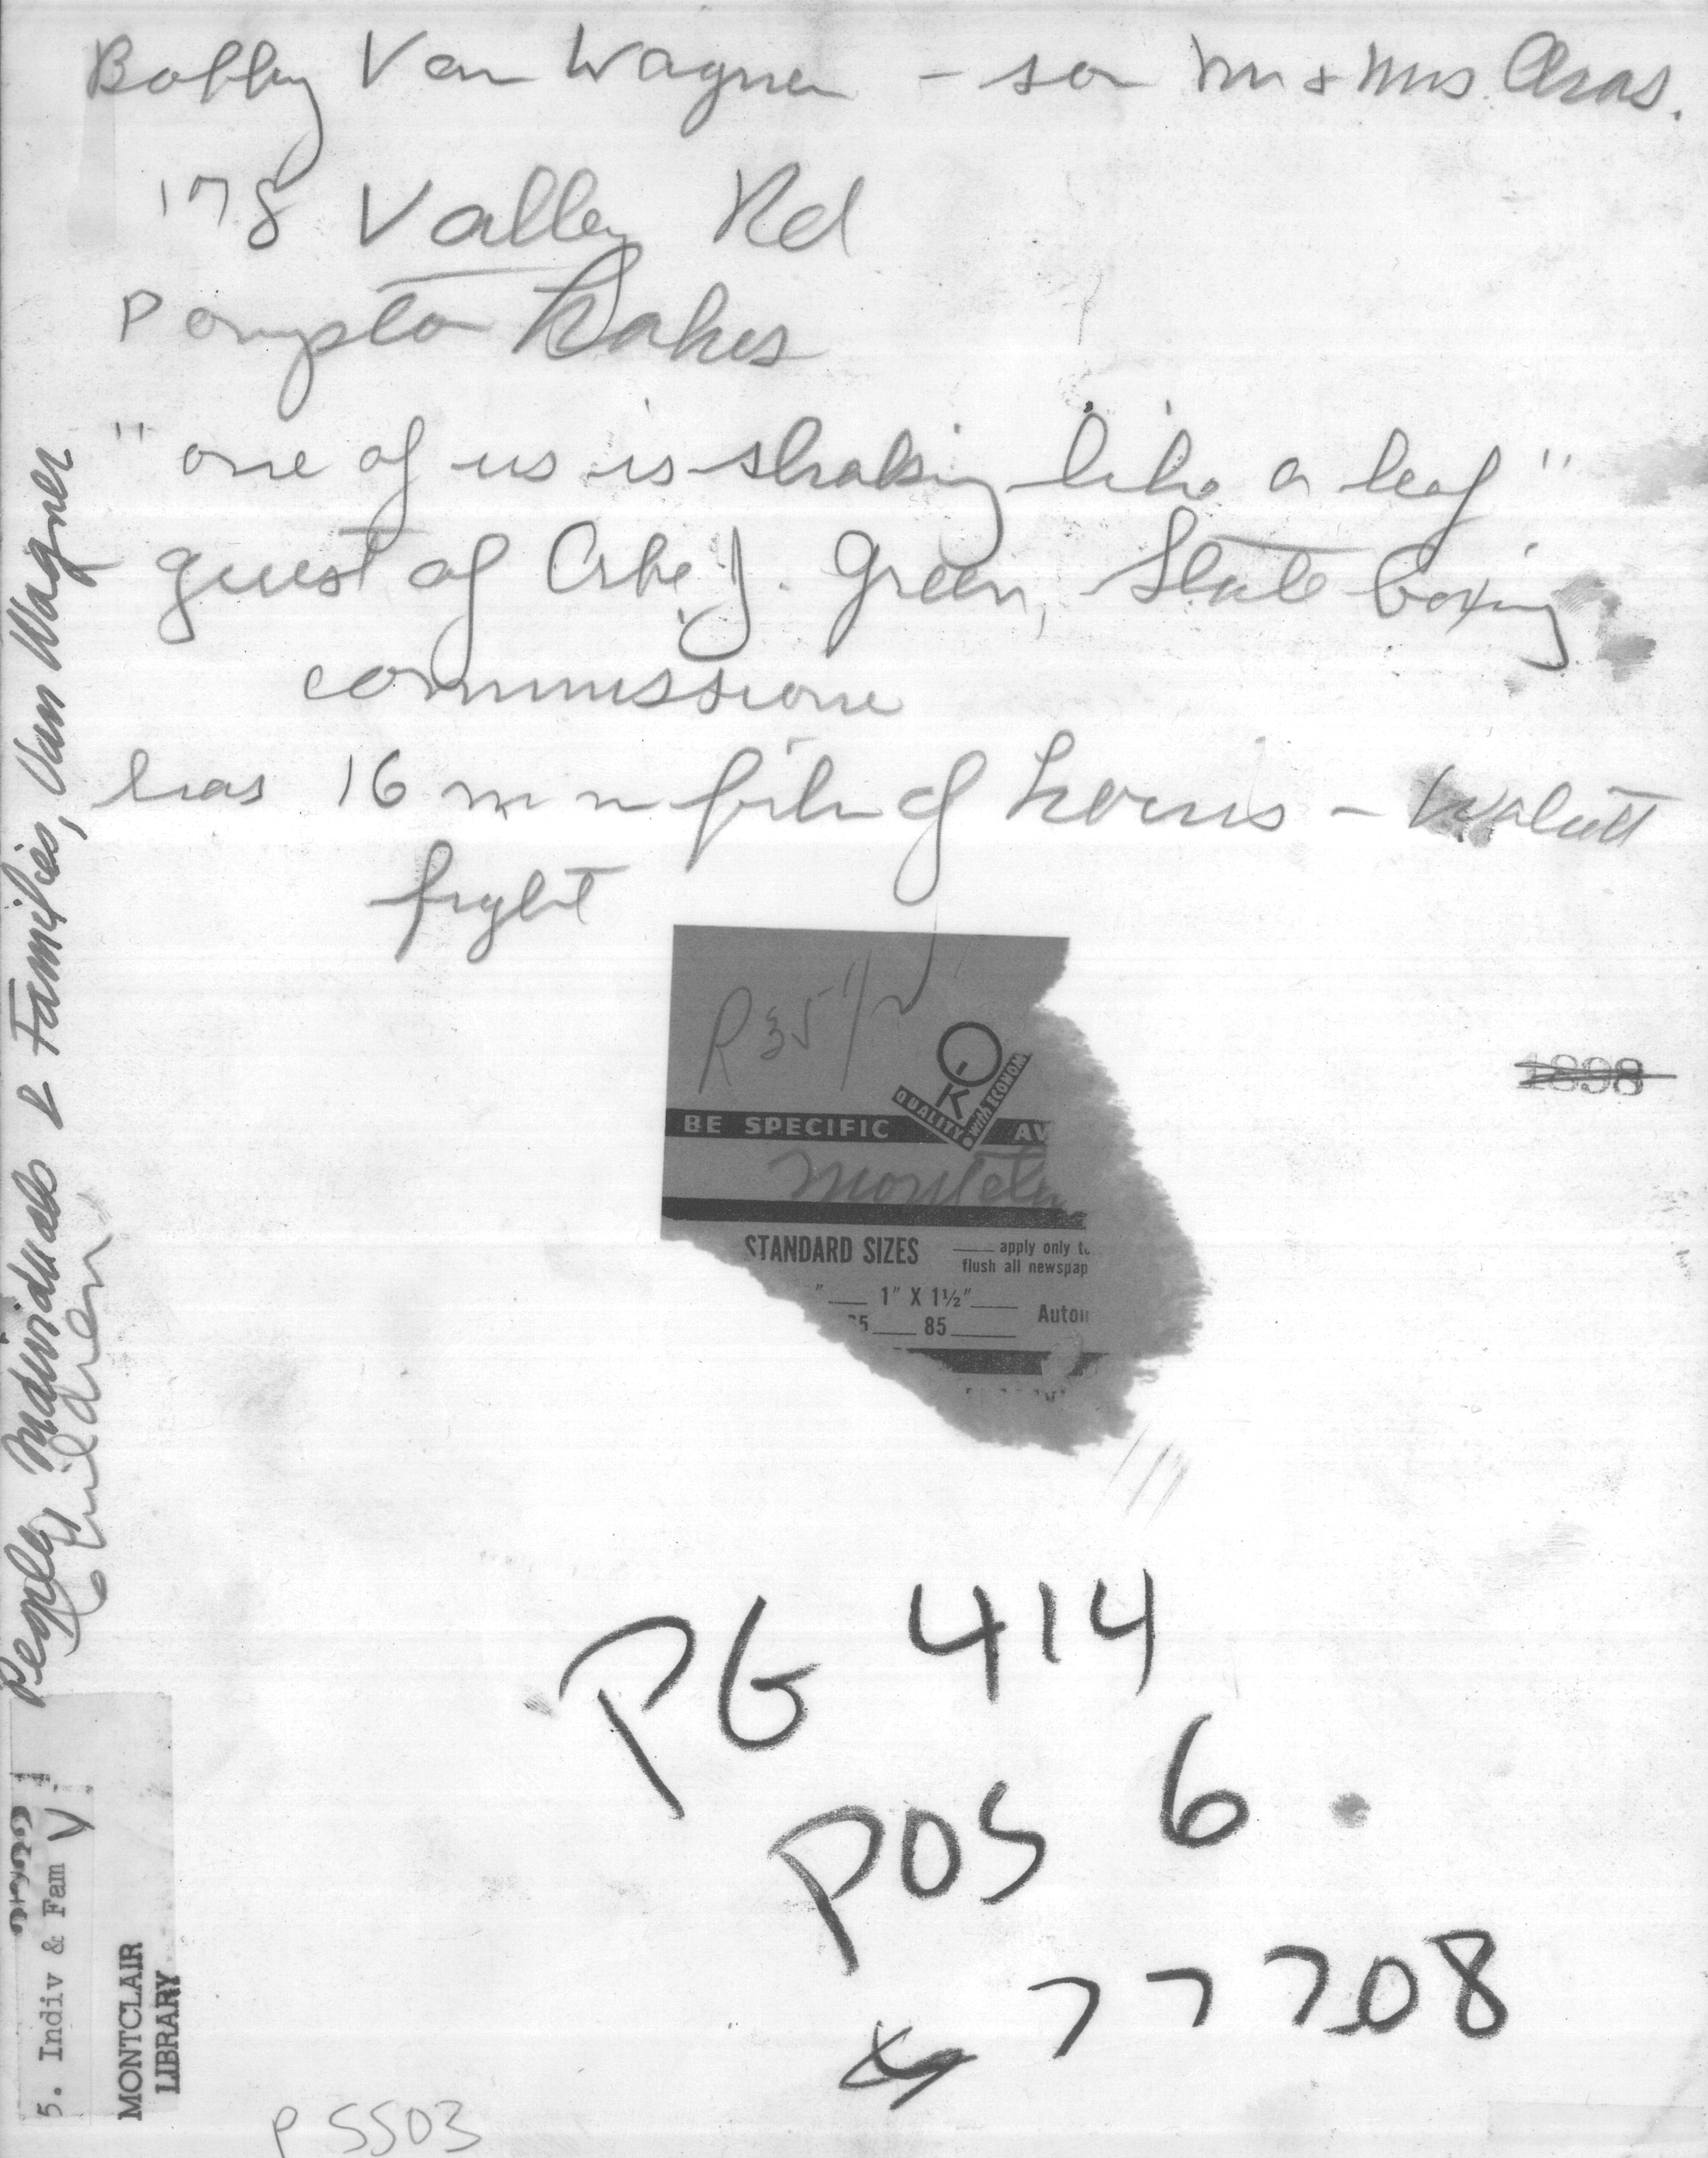 Bobby Van Wagner - son Mr & Mrs. Chas.
178 Valley Rd
Pompton Lakes
"one of us is shaking like a leaf"
guest of Abe J. Green, State boxing
commissione
has 16 mm film of Louis - Walcott
fight
R 35 1/2
OK
QUALITY with ECONOM
BE SPECIFIC AV
STANDARD SIZES
apply only to
flush all newspap
" 1" X 1½"
85
Autom
1898
PG 414
POS 6
77708
P 5503
People, Individuals & Families, Van Wagner
Children
5. Indiv & Fam V
MONTCLAIR
LIBRARY